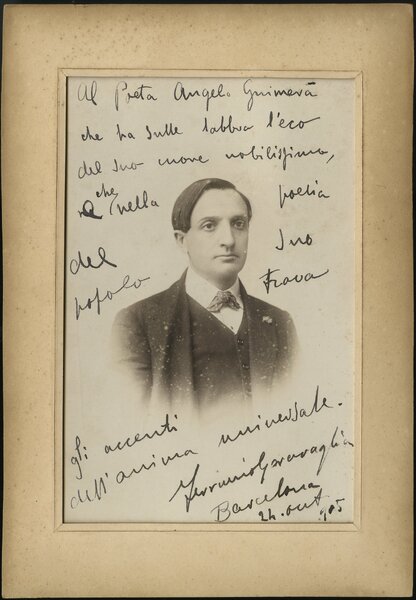 Al Poeta Angelo Guimerà
che ha sulle labbra l'eco
del suo cuore nobilissimo,
e che nella poesia
del suo
popolo trova
gli accenti
dell'anima universale.
Ferruccio Garavaglia
Barcelona
24. out 905